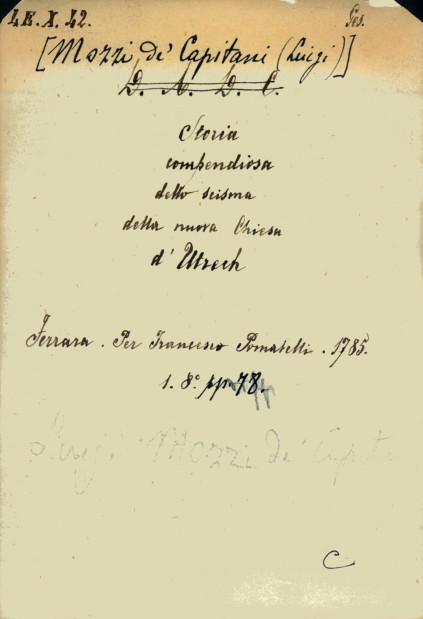 1.E.X.42. Ges.
[Mozzi de' Capitani (Luigi)]
D. A. D. C.
Storia
compendiosa
dello scisma
della nuova Chiesa
d'Utrech
Ferrara. Per Francesco Pomatelli. 1785.
1. 8.º pp. 78.
Luigi Mozzi de' Capita
C